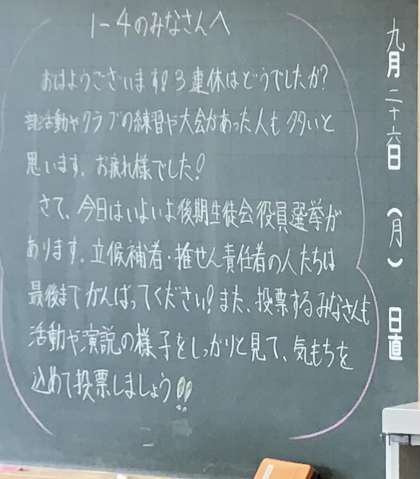 1-4のみなさんへ
おはようございます!3連休はどうでしたか?
部活動やクラブの練習や大会があった人も多いと
思います。お疲れ様でした!
さて、今日はいよいよ後期生徒会役員選挙が
あります。立候補者・推せん責任者の人たちは
最後までがんばってください!また、投票するみなさんも
活動や演説の様子をしっかりと見て、気もちを
込めて投票しましょう!!
九月二十六日(月)日直